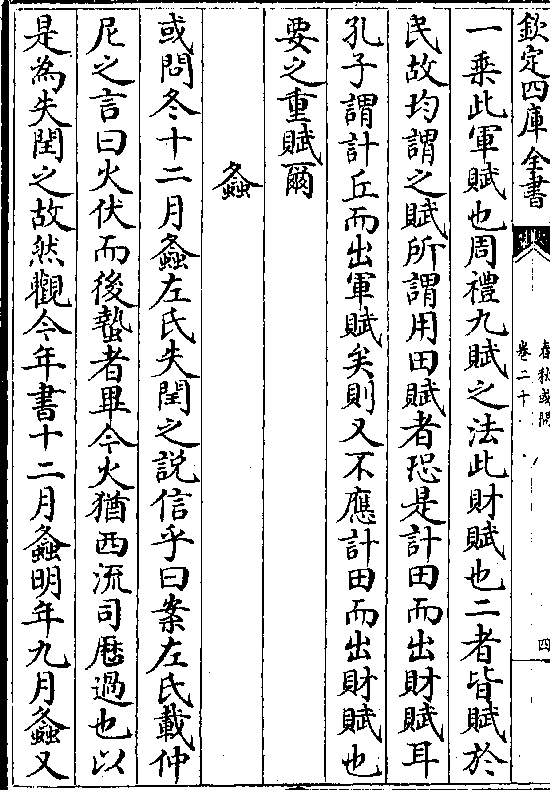 欽定四庫全書
春秋或問
卷二十
四
一乘此軍賦也周禮九賦之法此財賦也二者皆賦於
民故均謂之賦所謂用田賦者恐是計田而出財賦耳
孔子謂計丘而出軍賦矣則又不應計田而出財賦也
要之重賦爾
螽
或問冬十二月螽左氏失閏之說信乎曰案左氏載仲
尼之言曰火伏而後蟄者畢今火猶西流司厯過也以
是為失閏之故然觀今年書十二月螽明年九月螽又